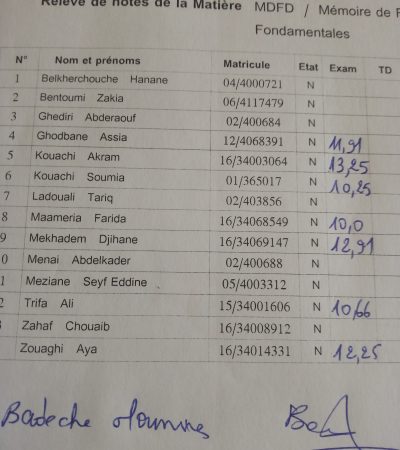 Relevé de notes de la Matière MDFD / Mémoire de F
Fondamentales
N° Nom et prénoms Matricule Etat Exam TD
1 Belkherchouche Hanane 04/4000721 N
2 Bentoumi Zakia 06/4117479 N
3 Ghediri Abderaouf 02/400684 N
4 Ghodbane Assia 12/4068391 N 11,91
5 Kouachi Akram 16/34003064 N 13,25
6 Kouachi Soumia 01/365017 N 10,25
7 Ladouali Tariq 02/403856 N
8 Maameria Farida 16/34068549 N 10,0
9 Mekhadem Djihane 16/34069147 N 12,91
0 Menai Abdelkader 02/400688 N
1 Meziane Seyf Eddine 05/4003312 N
2 Trifa Ali 15/34001606 N 10,66
Zahaf Chouaib 16/34008912 N
Zouaghi Aya 16/34014331 N 12,25
Badeche